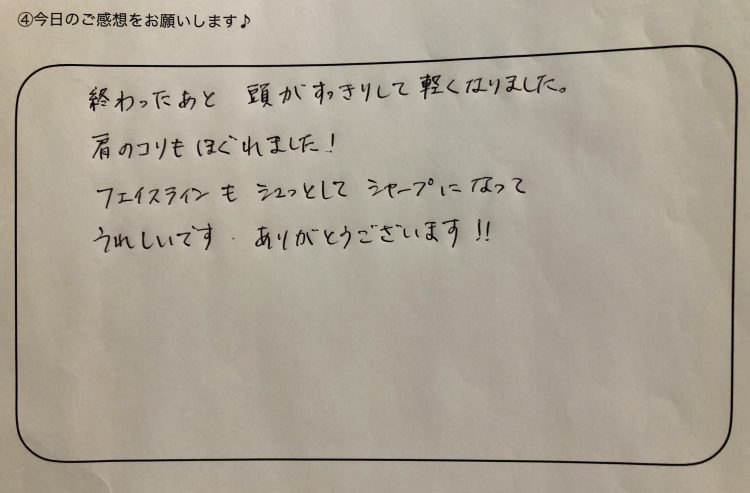 ④今日のご感想をお願いします♪
終わったあと 頭がすっきりして軽くなりました。
肩のコリもほぐれました！
フェイスラインも シュっとして シャープになって
うれしいです. ありがとうございます!!